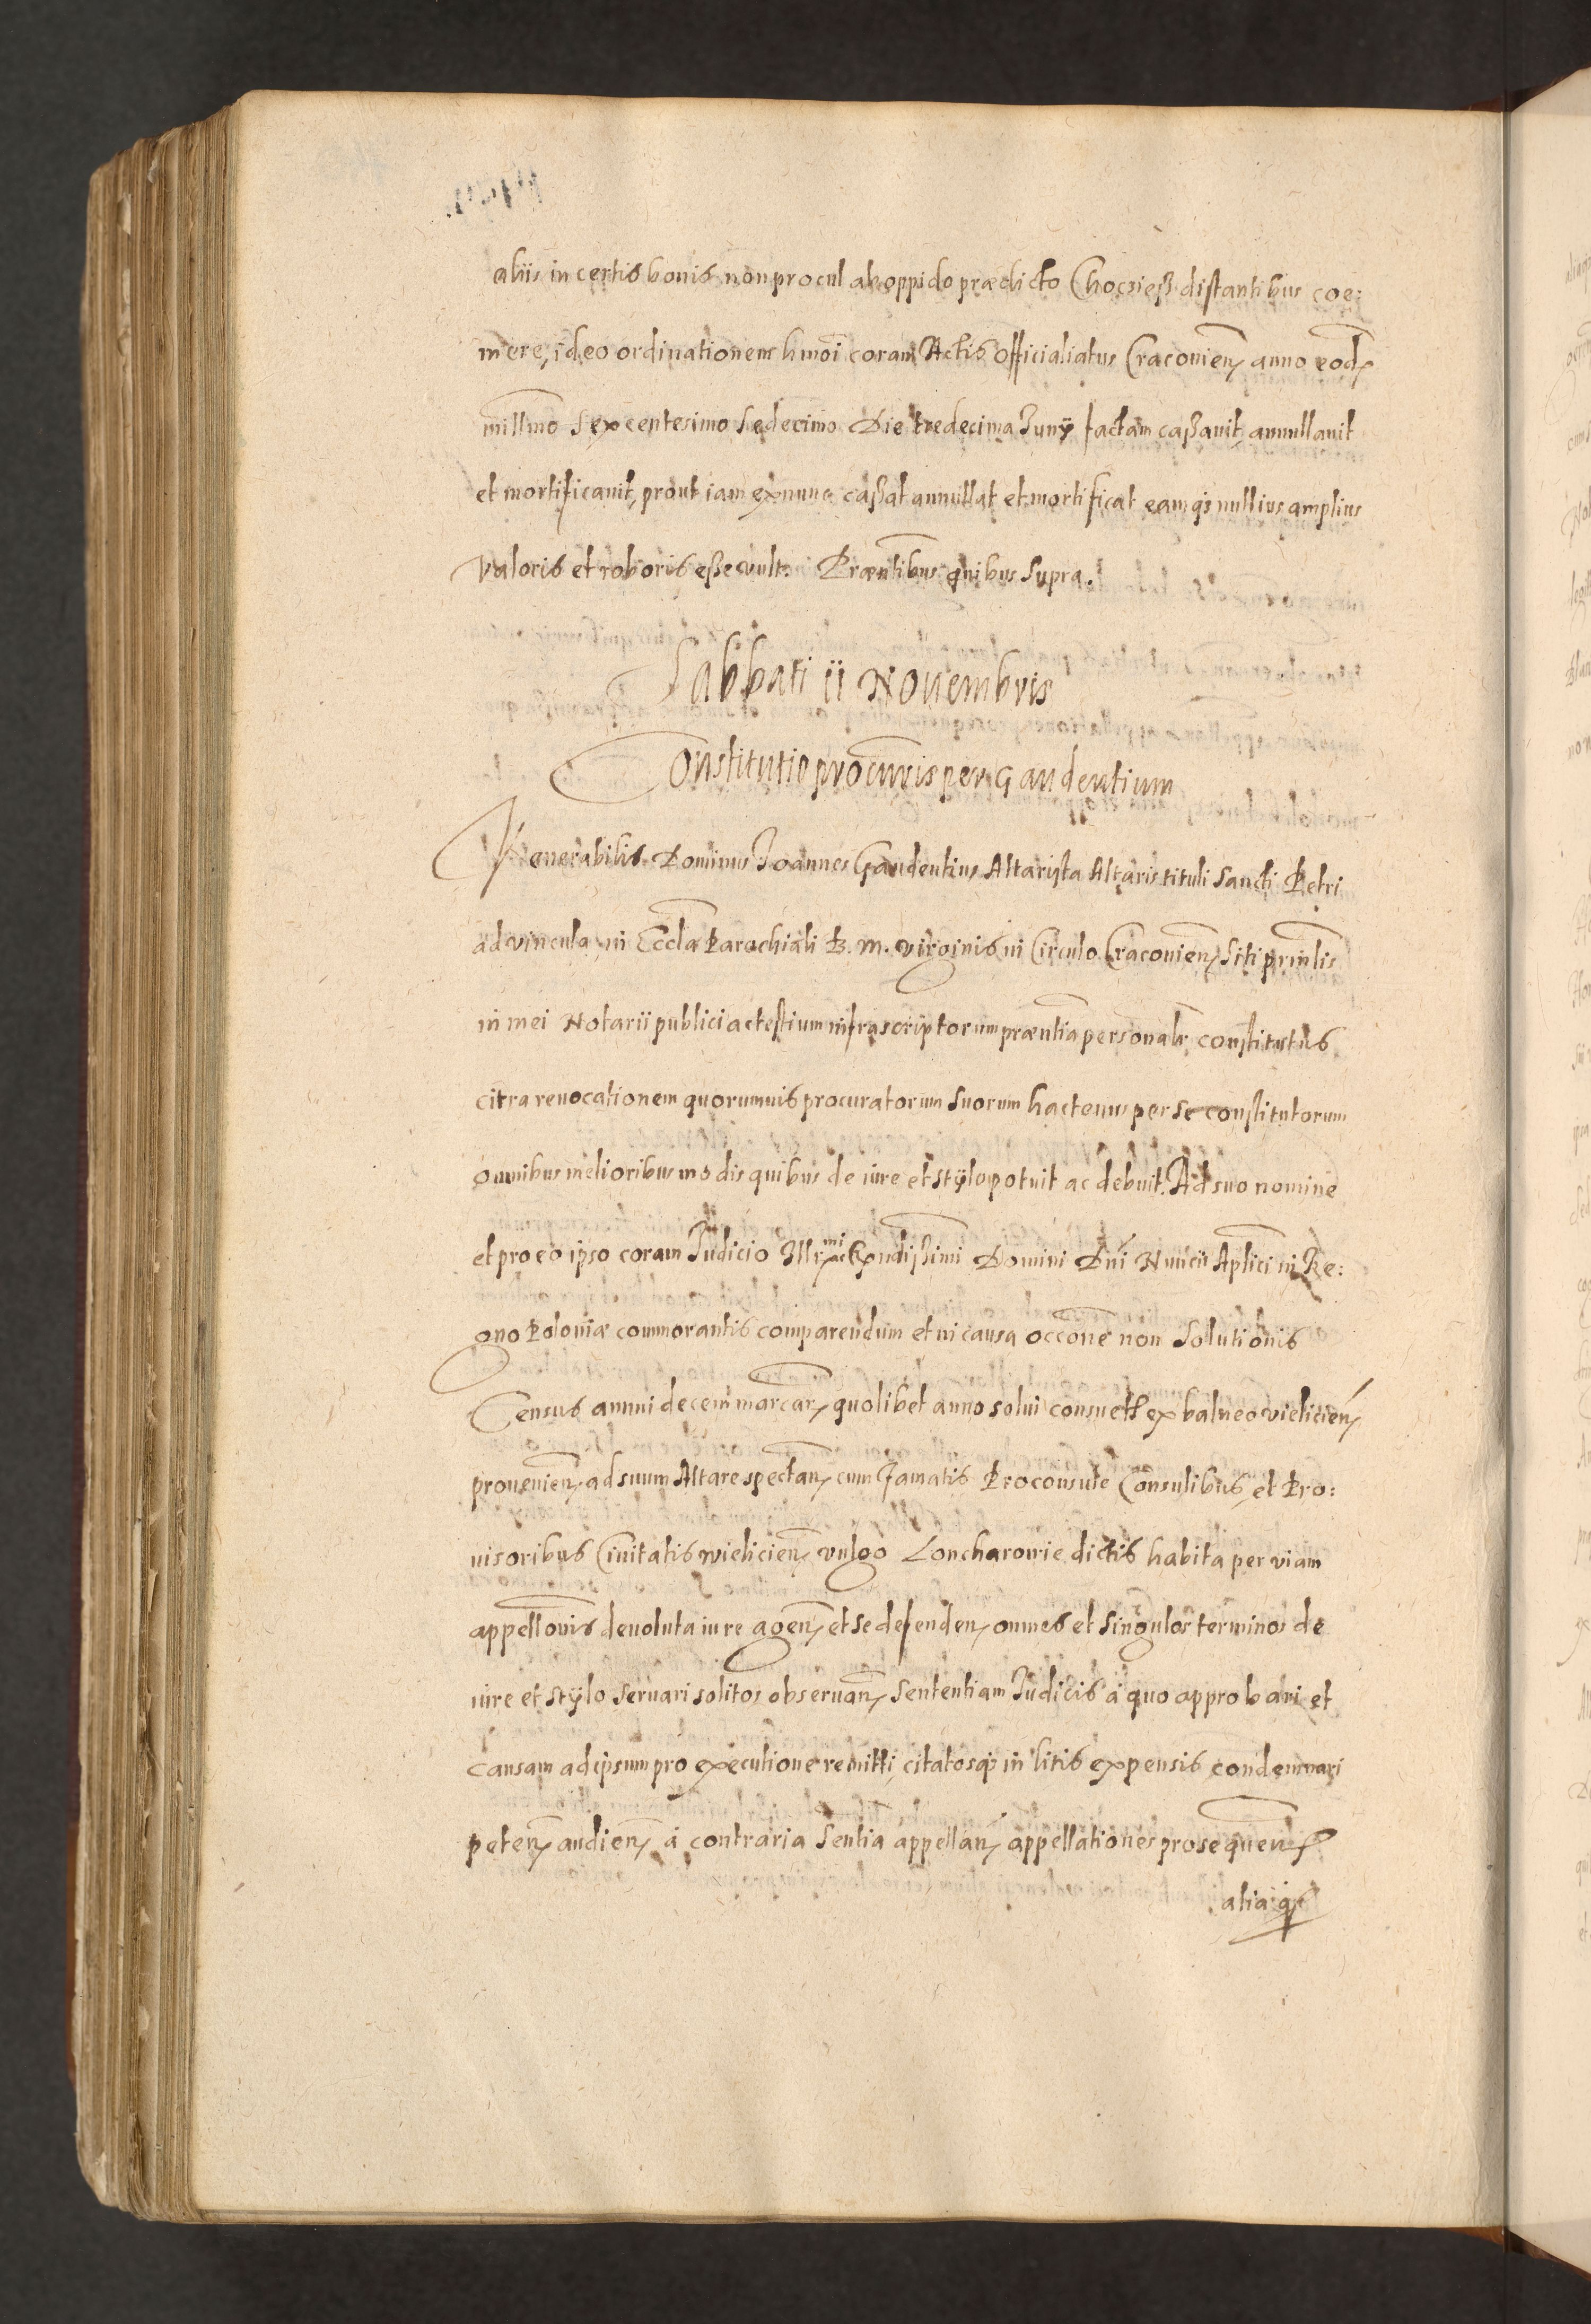 aliis in certis bonis non procul ab oppido prædicto Choczeß distantibus coe:
mere, ideo ordinationem hmoi coram Actis Officialiatus Cracovien̄ anno eod̄
millmo Sexcentesimo Sedecimo Die tredecima Iunÿ factam caßauit, annullauit
et mortificauit, prout iam ex nunc caßat annullat et mortificat eamq3 nullius amplius
valoris et roboris eße vult. Præntibus quibus Supra.
Sabbati ii Novembris
Constitutio procuris per Gaudentium
Venerabilis Dominus Joannes Gaudentius Altarista Altaris tituli Sancti Petri
ad vincula in Eccla Parochiali B. M. virginis in Circulo Cracovien̄ Siti prinlis
in mei Notarii publici ac testium infrascriptorum præntia personalr constitutus
citra reuocationem quorumuis procuratorum Suorum hactenus per se constitutorum
omnibus melioribus modis quibus de iure et stÿlo potuit ac debuit. Ad suo nomine
et pro eo ipso coram Iudicio Illrmi ac Rndißimi Domini Dni Nuncii Aplici in Re:
gno Poloniæ commorantis comparendum et in causa occone non Solutionis
Census annui decem marcar̄ quolibet anno solui consueti ex balneo vielicien̄
provenien̄ ad suum Altare spectan̄ cum famatis Proconsule Consulibus et Pro:
uisoribus Ciuitatis wielicien̄ vulgo Loncharowie dictis habita per viam
appellonis deuoluta iure agen̄ et se defenden̄ omnes et Singulos terminos de
iure et stÿlo Seruari solitos obseruan̄ Sententiam Iudicis à quo approbari et
causam ad ipsum pro executione remitti, citatosq3 in litis expensis condemnari
peten̄ audien̄ à contraria Sentia appellan̄ appellationes prosequen̄
aliaq3